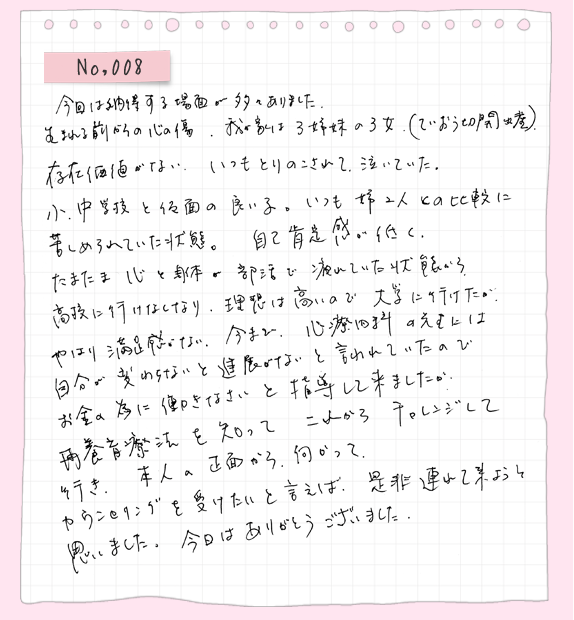 No,008
今回は納得する場面が多々ありました.
生まれる前からの心の傷、我が家は3姉妹の3女.(ていおう切開出産).
存在価値がない. いつもとりのこされて、泣いていた。
小、中学校と仮面の良い子。いつも姉2人との比較に
苦しめられていた状態。 自己肯定感が低く、
たまたま心と身体が部活で疲れていた状態から
高校に行けなくなり、理想は高いので大学に行けたが、
やはり満足感がない. 今まで、心療内科の先生には
自分が変わらないと進展がないと言われていたので
お金の為に働きなさいと指導して来ましたが、
再養育療法を知って これから チャレンジして
行き、 本人の正面から、向かって、
カウンセリングを受けたいと言えば、是非連れて来ようと
思いました。今日はありがとうございました.